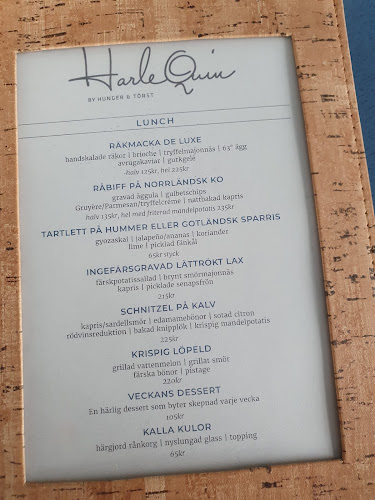 Harle Quin
BY HUNGER & TÖRST
LUNCH
RÄKMACKA DE LUXE
handskalade räkor | brioche | tryffelmajonnäs | 63° ägg
avrugakaviar | gurkgelé
halv 125kr, hel 225kr
RÅBIFF PÅ NORRLÄNDSK KO
gravad äggula | gulbetschips
Gruyère/Parmesan/tryffelcrème | nattbakad kapris
halv 135kr, hel med friterad mandelpotatis 235kr
TARTLETT PÅ HUMMER ELLER GOTLÄNDSK SPARRIS
gyozaskal | jalapeño/ananas | koriander
lime | picklad fänkål
65kr styck
INGEFÄRSGRAVAD LÄTTRÖKT LAX
färskpotatissallad | brynt smörmajonnäs
kapris | picklade senapsfrön
215kr
SCHNITZEL PÅ KALV
kapris/sardellsmör | edamamebönor | sotad citron
rödvinsreduktion | bakad knipplök | krispig mandelpotatis
225kr
KRISPIG LÖPELD
grillad vattenmelon | grillat smör
färska bönor | pistage
220kr
VECKANS DESSERT
En härlig dessert som byter skepnad varje vecka
105kr
KALLA KULOR
härgjord rånkorg | nyslungad glass | topping
65kr